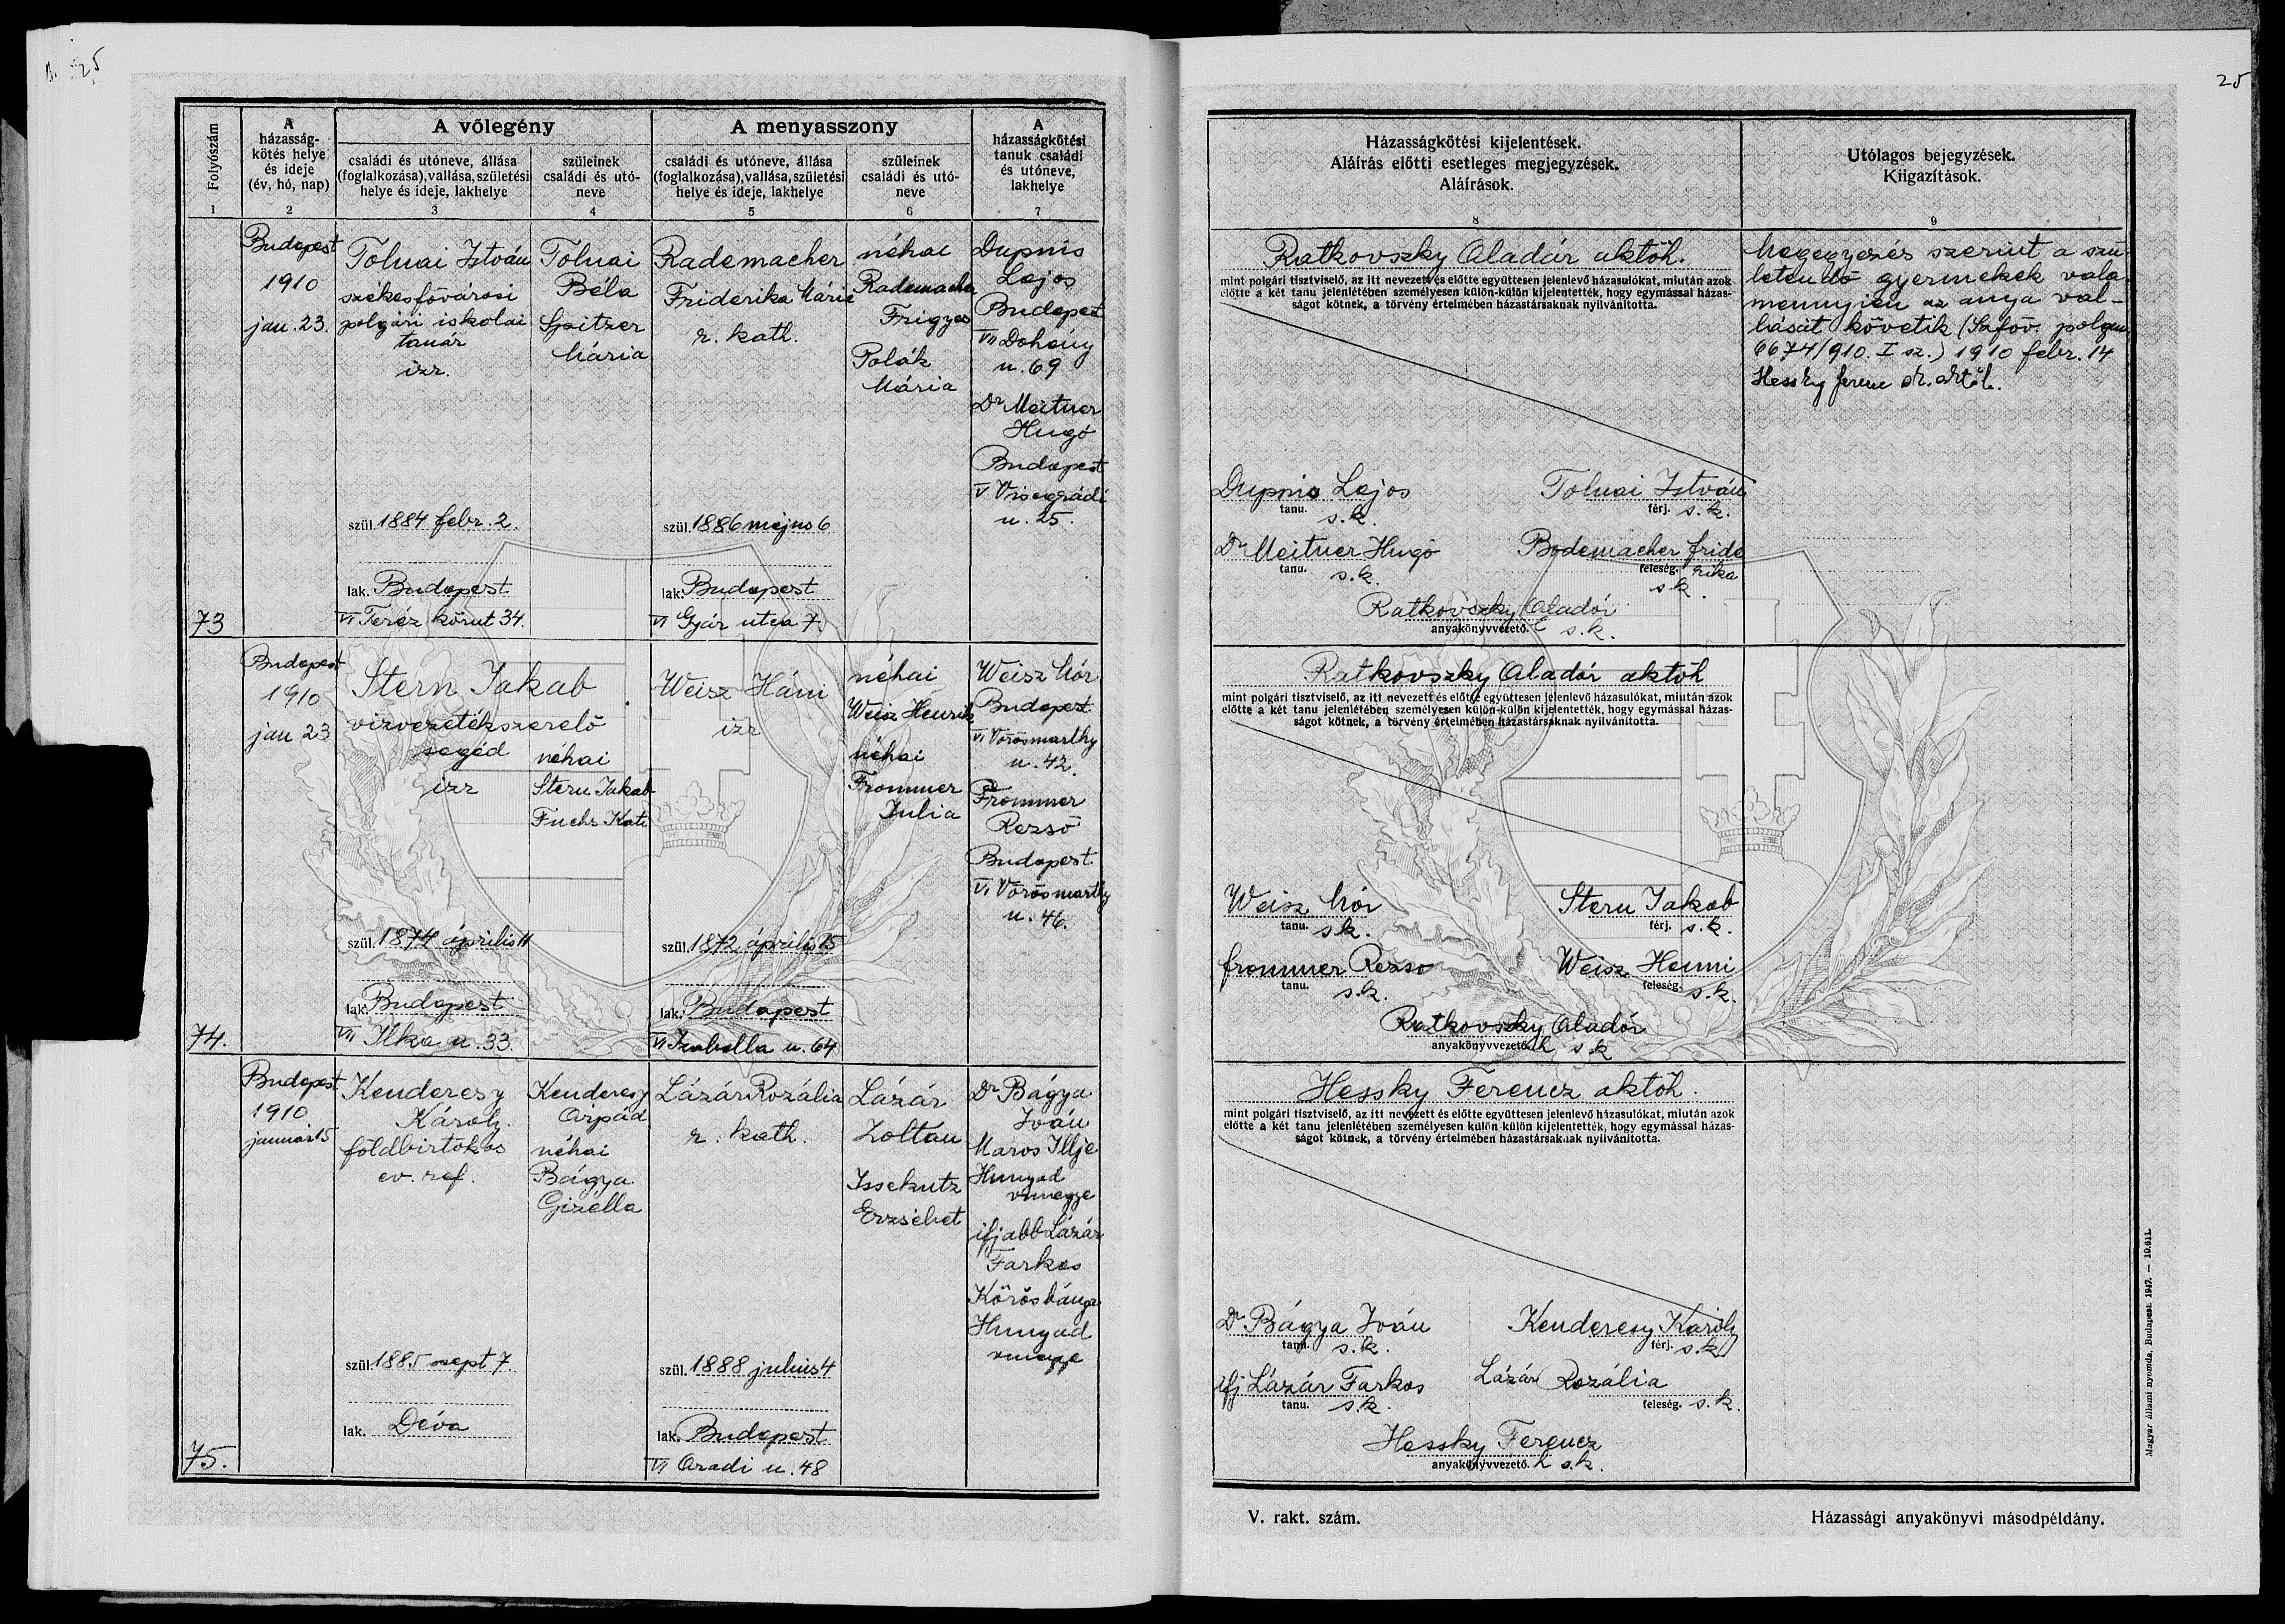 25
25
Folyószám
1
A
házasság-
kötés helye
és ideje
(év, hó, nap)
2
A vőlegény
családi és utóneve, állása
(foglalkozása), vallása, születési
helye és ideje, lakhelye
3
szüleinek
családi és utó-
neve
4
A menyasszony
családi és utóneve, állása
(foglalkozása), vallása, születési
helye és ideje, lakhelye
5
szüleinek
családi és utó-
neve
6
A
házasságkötési
tanuk családi
és utóneve,
lakhelye
7
Házasságkötési kijelentések.
Aláírás előtti esetleges megjegyzések.
Aláírások.
8
Utólagos bejegyzések.
Kiigazítások.
9
73
Budapest
1910
jan. 23.
Tolnai István
székesfővárosi
polgári iskolai
tanár
izr.
szül. 1884 febr. 2.
lak. Budapest
VI Teréz körut 34.
Tolnai
Béla
Spitzer
Mária
Rademacher
Friderika Mária
r. kath.
szül. 1886 május 6
lak. Budapest
VI Gyár utca 7.
néhai
Rademacher
Frigyes
Polák
Mária
Dupnis
Lajos
Budapest
VII Dohány
u. 69
Dr Meitner
Hugó
Budapest
V Visegrádi
u. 25.
Ratkovszky Aladár aktöh.
mint polgári tisztviselő, az itt nevezett és előtte együttesen jelenlevő házasulókat, miután azok
előtte a két tanu jelenlétében személyesen külön-külön kijelentették, hogy egymással házas-
ságot kötnek, a törvény értelmében házastársaknak nyilvánította.
Dupnis Lajos
tanu. s.k.
Tolnai István
férj. s.k.
Dr Meitner Hugó
tanu. s.k.
Rademacher Fride
feleség. rika
s.k.
Ratkovszky Aladár
anyakönyvvezető. h s.k.
Megegyezés szerint a szü-
letendő gyermekek vala-
mennyien az anya val-
lását követik (Szföv. polgm.
6674/910. I sz.) 1910 febr. 14
Hessky Ferenc sk. aktöh.
74.
Budapest
1910
jan 23
Stern Jakab
vizvezetékszerelő
segéd
izr
szül. 1874 április 11
lak. Budapest
VII Ilka u. 33.
néhai
Stern Jakab
Fuchs Kati
Weisz Háni
izr
szül. 1872 április 15
lak. Budapest
VI Izabella u. 64
néhai
Weisz Henrik
néhai
Frommer
Julia
Weisz Mór
Budapest
VI Vörösmarthy
u. 42.
Frommer
Rezső
Budapest
VI Vörösmarthy
u. 46.
Ratkovszky Aladár aktöh
mint polgári tisztviselő, az itt nevezett és előtte együttesen jelenlevő házasulókat, miután azok
előtte a két tanu jelenlétében személyesen külön-külön kijelentették, hogy egymással házas-
ságot kötnek, a törvény értelmében házastársaknak nyilvánította.
Weisz Mór
tanu. s.k.
Stern Jakab
férj. s.k.
Frommer Rezső
tanu. s.k.
Weisz Hanni
feleség. s.k.
Ratkovszky Aladár
anyakönyvvezető. h s.k
75.
Budapest
1910
január 15
Kenderesy
Károly
földbirtokos
ev. ref.
szül. 1885 szept 7.
lak. Déva
Kenderesy
Árpád
néhai
Bágya
Gizella
Lázár Rozália
r. kath.
szül. 1888 julius 4
lak. Budapest
VI Aradi u. 48
Lázár
Zoltán
Issekutz
Erzsébet
Dr Bágya
Iván
Maros Illye
Hunyad
vmegye
ifjabb Lázár
Farkas
Kőrösbánya
Hunyad
vmegye
Hessky Ferencz aktöh.
mint polgári tisztviselő, az itt nevezett és előtte együttesen jelenlevő házasulókat, miután azok
előtte a két tanu jelenlétében személyesen külön-külön kijelentették, hogy egymással házas-
ságot kötnek, a törvény értelmében házastársaknak nyilvánította.
Dr Bágya Iván
tanu. s.k.
Kenderesy Károly
férj. s.k.
ifj Lázár Farkas
tanu. s.k.
Lázár Rozália
feleség. s.k.
Hessky Ferencz
anyakönyvvezető. h s.k.
V. rakt. szám.
Házassági anyakönyvi másodpéldány.
Magyar állami nyomda, Budapest. 1947. — 10.611.